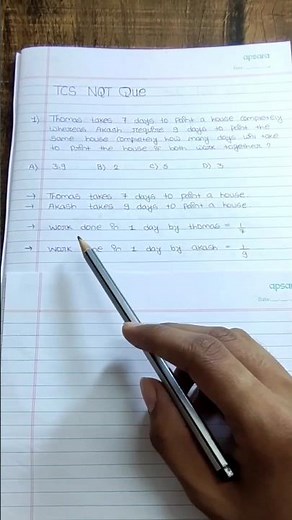 apsara
Date
TCS NQT Que
1) Thomas takes 7 days to paint a house completely
whereas Akash require 9 days to paint the
same house completely how many days will take
to paint the house if both work together?
A) 3.9 B) 2 C) 5 D) 3
→ Thomas takes 7 days to paint a house
→ Akash takes 9 days to paint a house
→ Work done in 1 day by thomas = 1/7
→ Work done in 1 day by akash = 1/9
apsa
Date